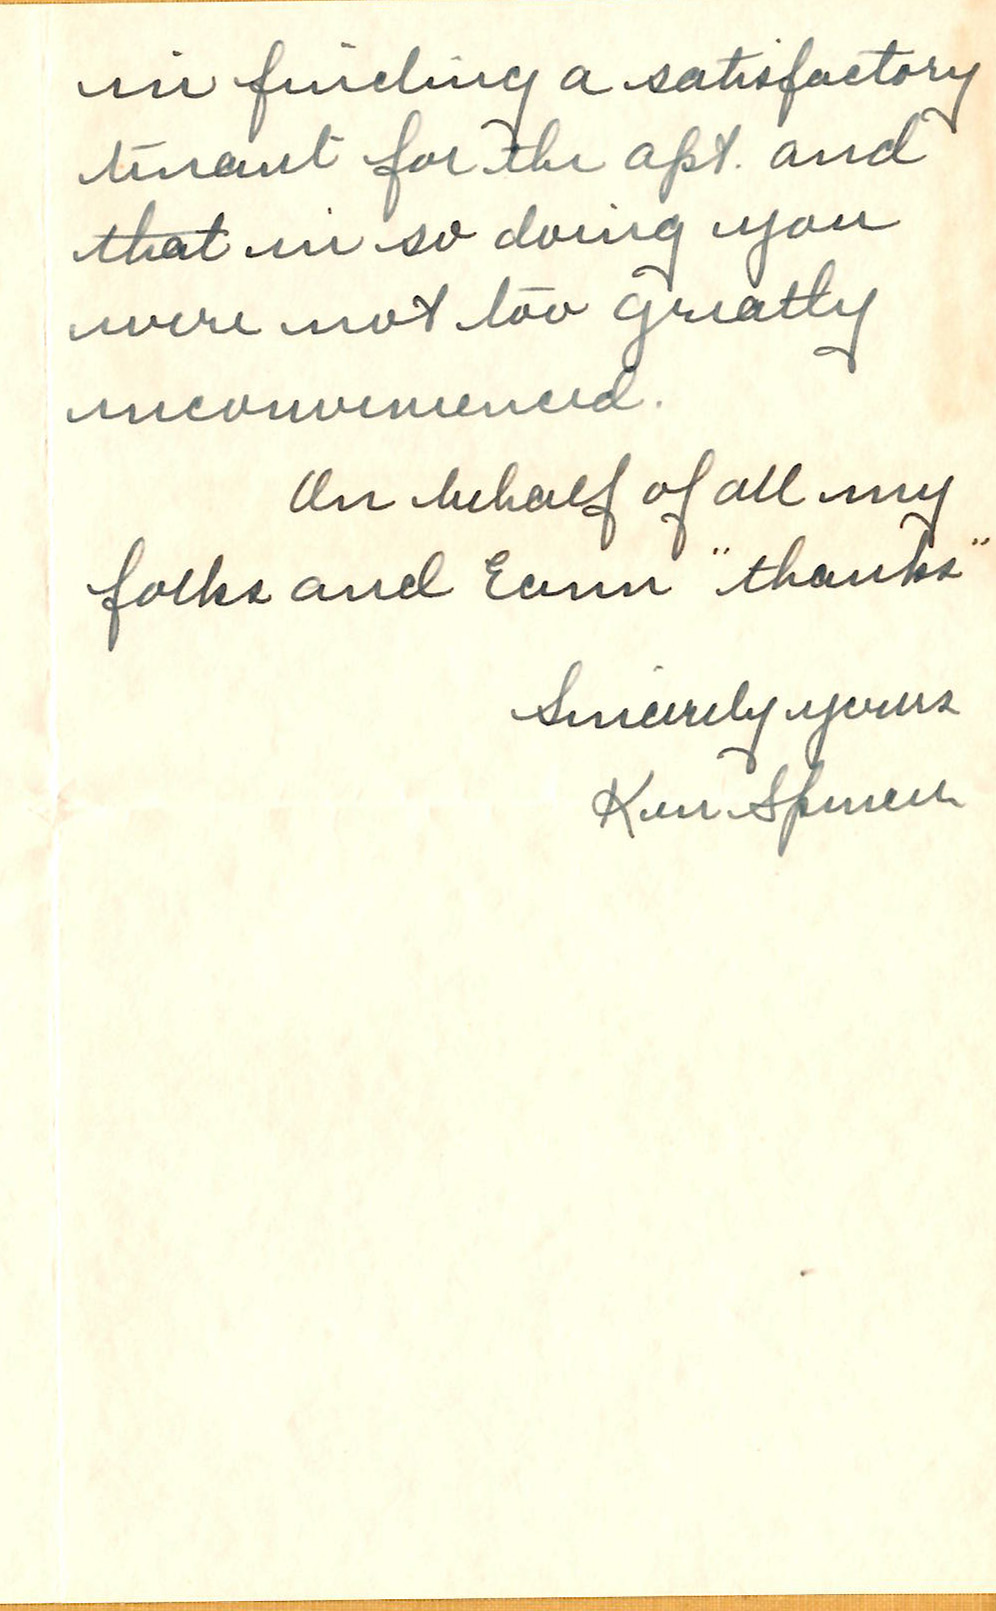 in finding a satisfactory
tenant for the apt. and
that in so doing you
were not too greatly
inconvenienced.
On behalf of all my
folks and "thanks"
Sincerely yours
Ken